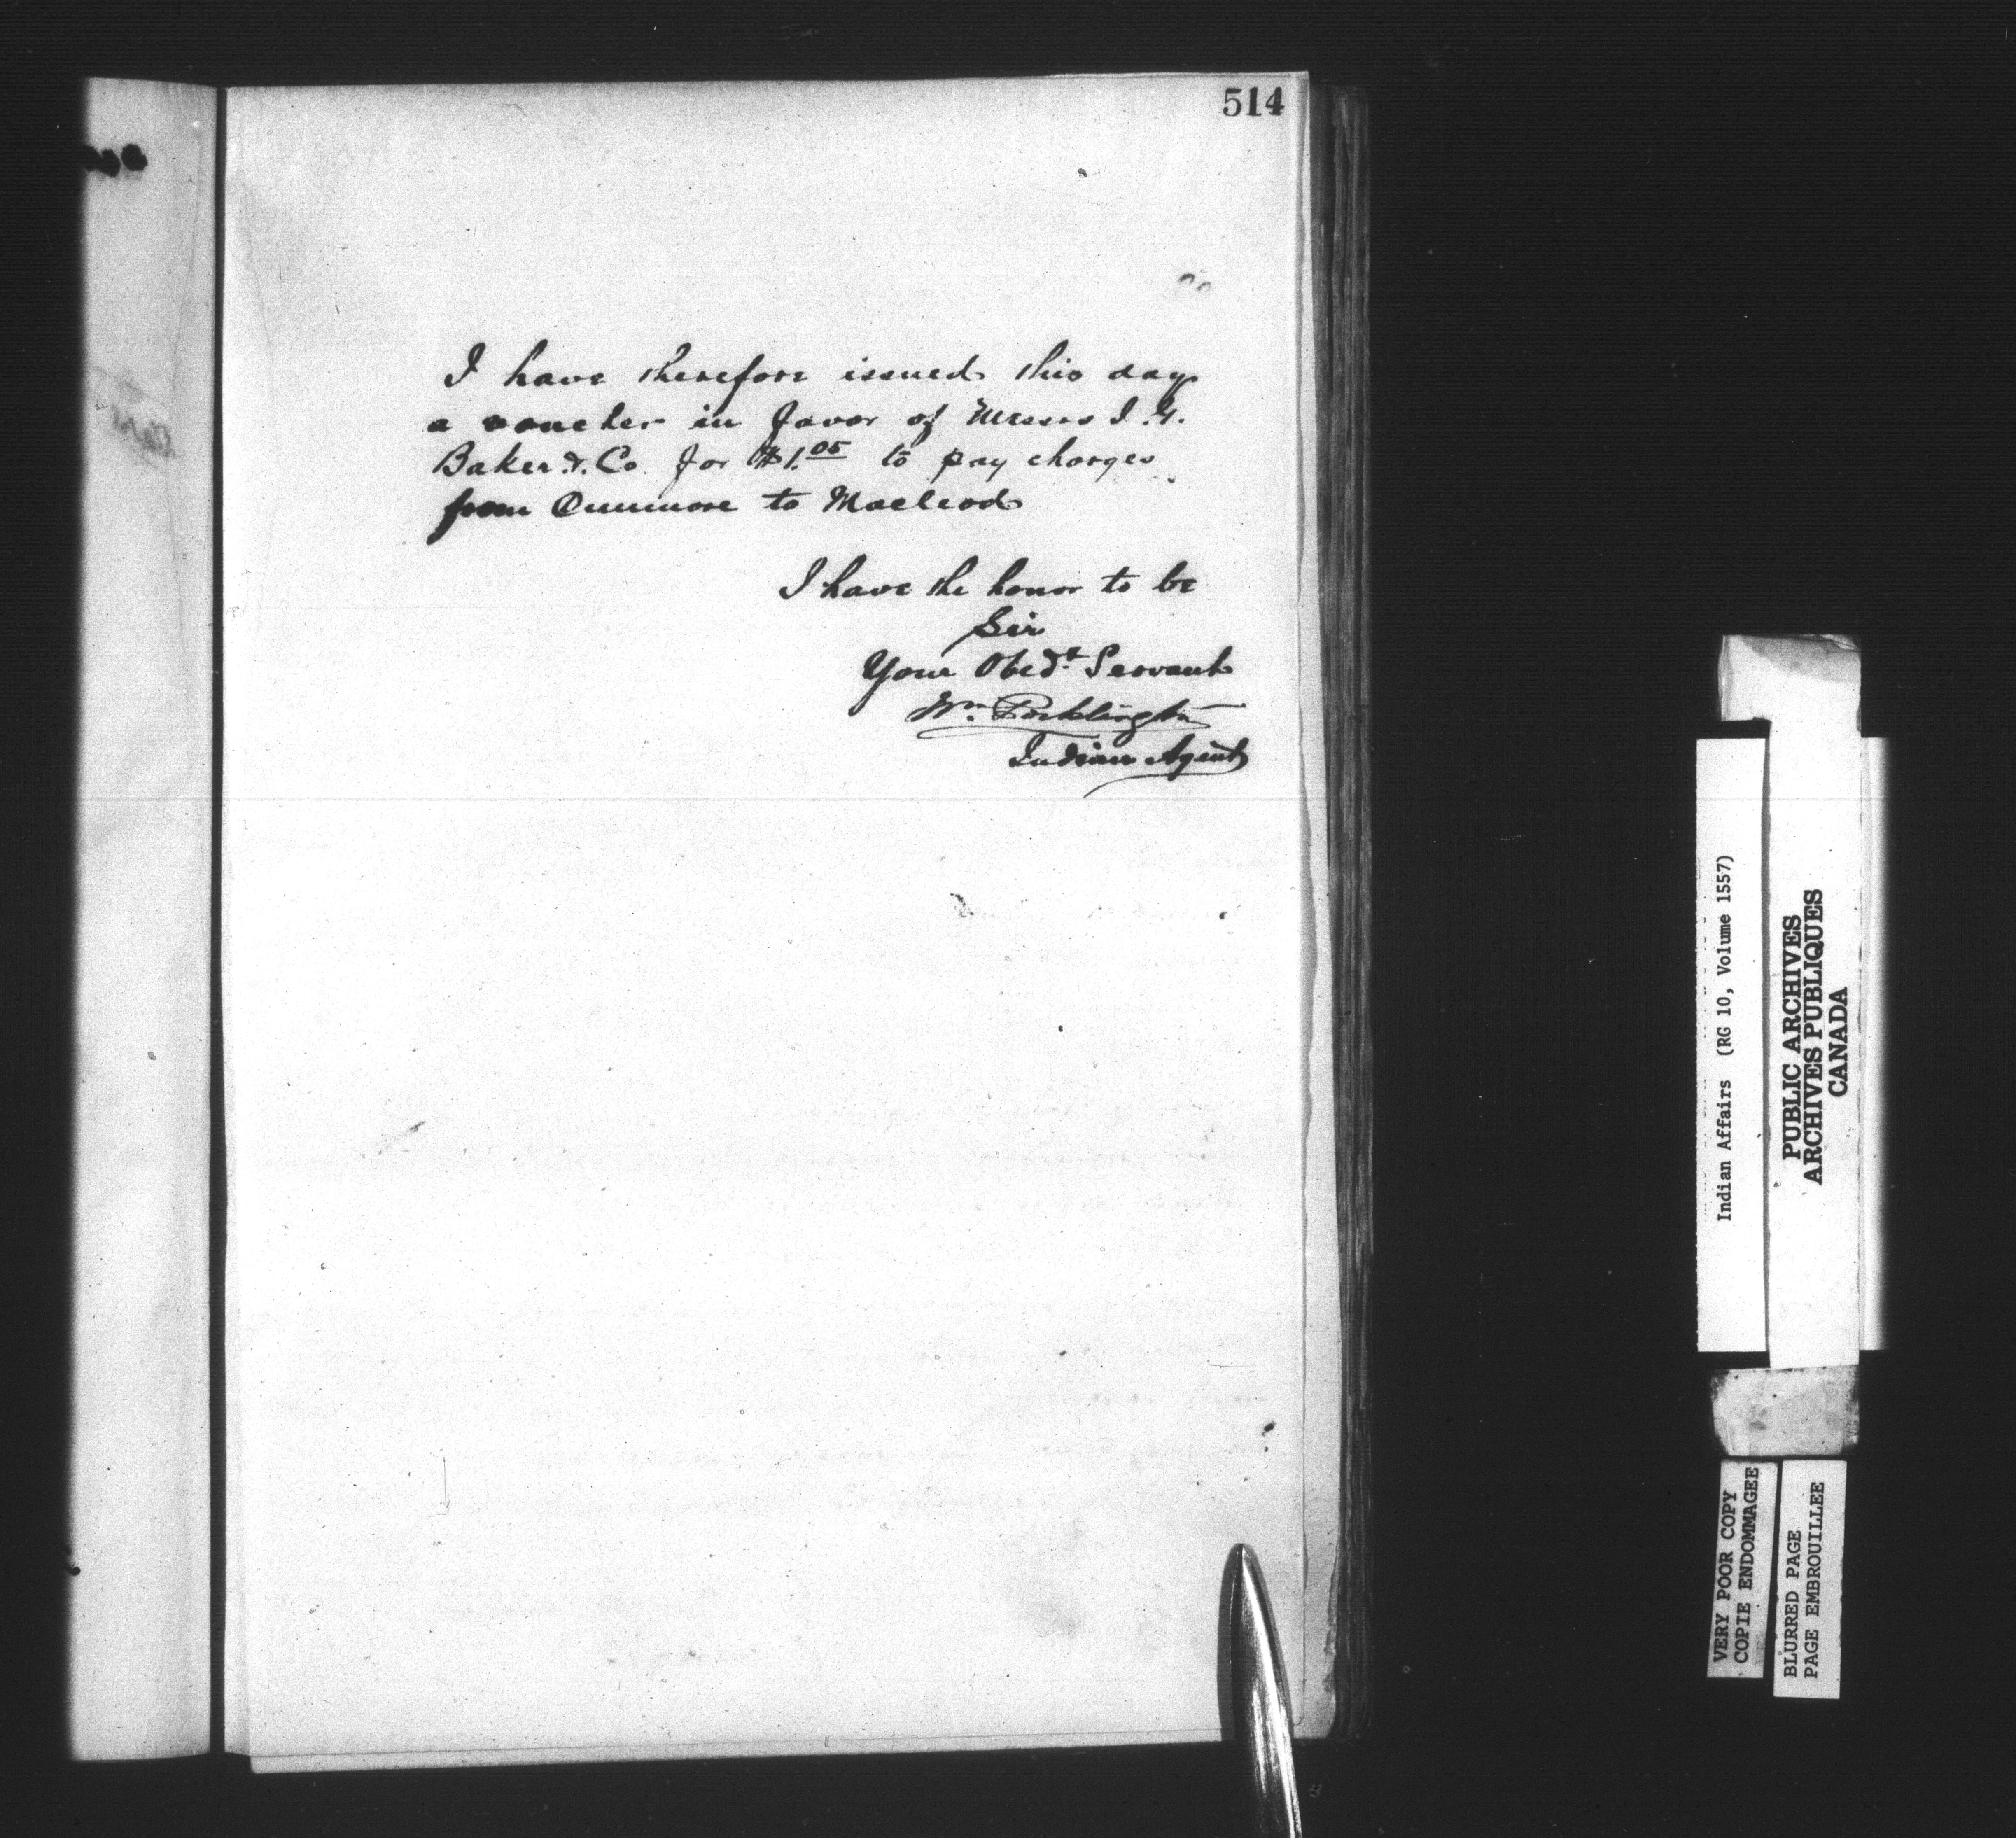 514
I have therefore issued this day
a voucher in favor of Messrs I. G.
Baker & Co for $1.05 to pay charges
from Dunmore to Macleod
I have the honor to be
Sir
Your Obedt Servant
Wm. Pocklington
Indian Agent
Indian Affairs (RG 10, Volume 1557)
PUBLIC ARCHIVES
ARCHIVES PUBLIQUES
CANADA
VERY POOR COPY
COPIE ENDOMMAGEE
BLURRED PAGE
PAGE EMBROUILLEE